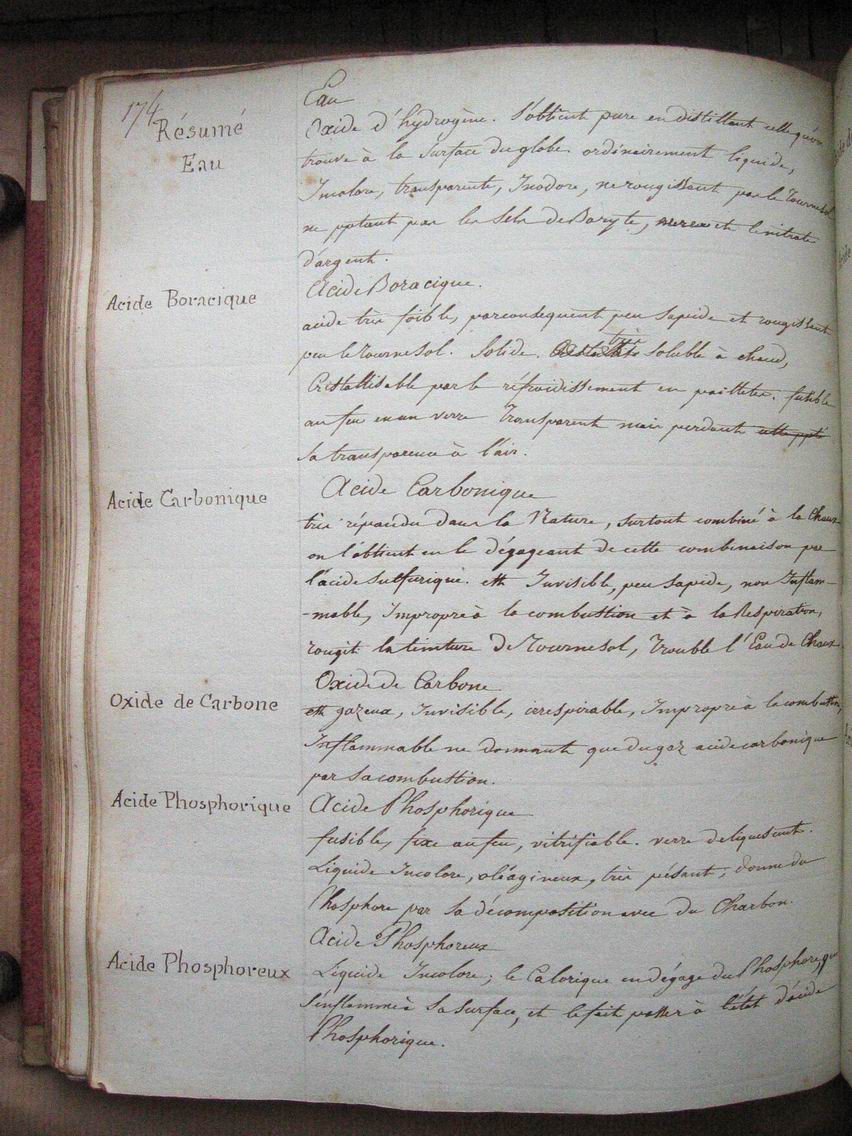 174
Résumé
Eau
Eau
Oxide d'hydrogène. S'obtient pure en distillant celle qu'on
trouve à la surface du globe ordinairement liquide,
Incolore, transparente, Inodore, ne rougissant pas le Tournesol
ne pptant pas les Sels de Baryte, et le nitrate
d'argent.
Acide Boracique
Acide Boracique.
acide très foible, parconsequent peu sapide et rougissant
peu le tournesol. Solide. très soluble à chaud,
Cristallisable par le réfroidissement en paillettes. fusible
au feu en un verre Transparent mais perdant
sa transparence à l'air.
Acide Carbonique
Acide Carbonique
très répandu dans la Nature, surtout combiné à la Chaux
on l'obtient en le dégageant de cette combinaison par
l'acide Sulfurique. est Invisible, peu sapide, non Inflam-
-mable, Impropre à la combustion et à la Respiration,
rougit la teinture de Tournesol, Trouble l'Eau de Chaux.
Oxide de Carbone
Oxide de Carbone
est gazeux, Invisible, irrespirable, Impropre à la combustion,
Inflammable ne donnant que du gaz acide carbonique
par sa combustion.
Acide Phosphorique
Acide Phosphorique
fusible, fixe au feu, vitrifiable. verre deliquescent.
Liquide Incolore, oléagineux, très pésant; donne du
Phosphore par sa décomposition avec du Charbon.
Acide Phosphoreux
Acide Phosphoreux
Liquide Incolore; le Calorique en dégage du Phosphore, qui
s'enflamme à sa surface, et le fait passer à l'état d'acide
Phosphorique.